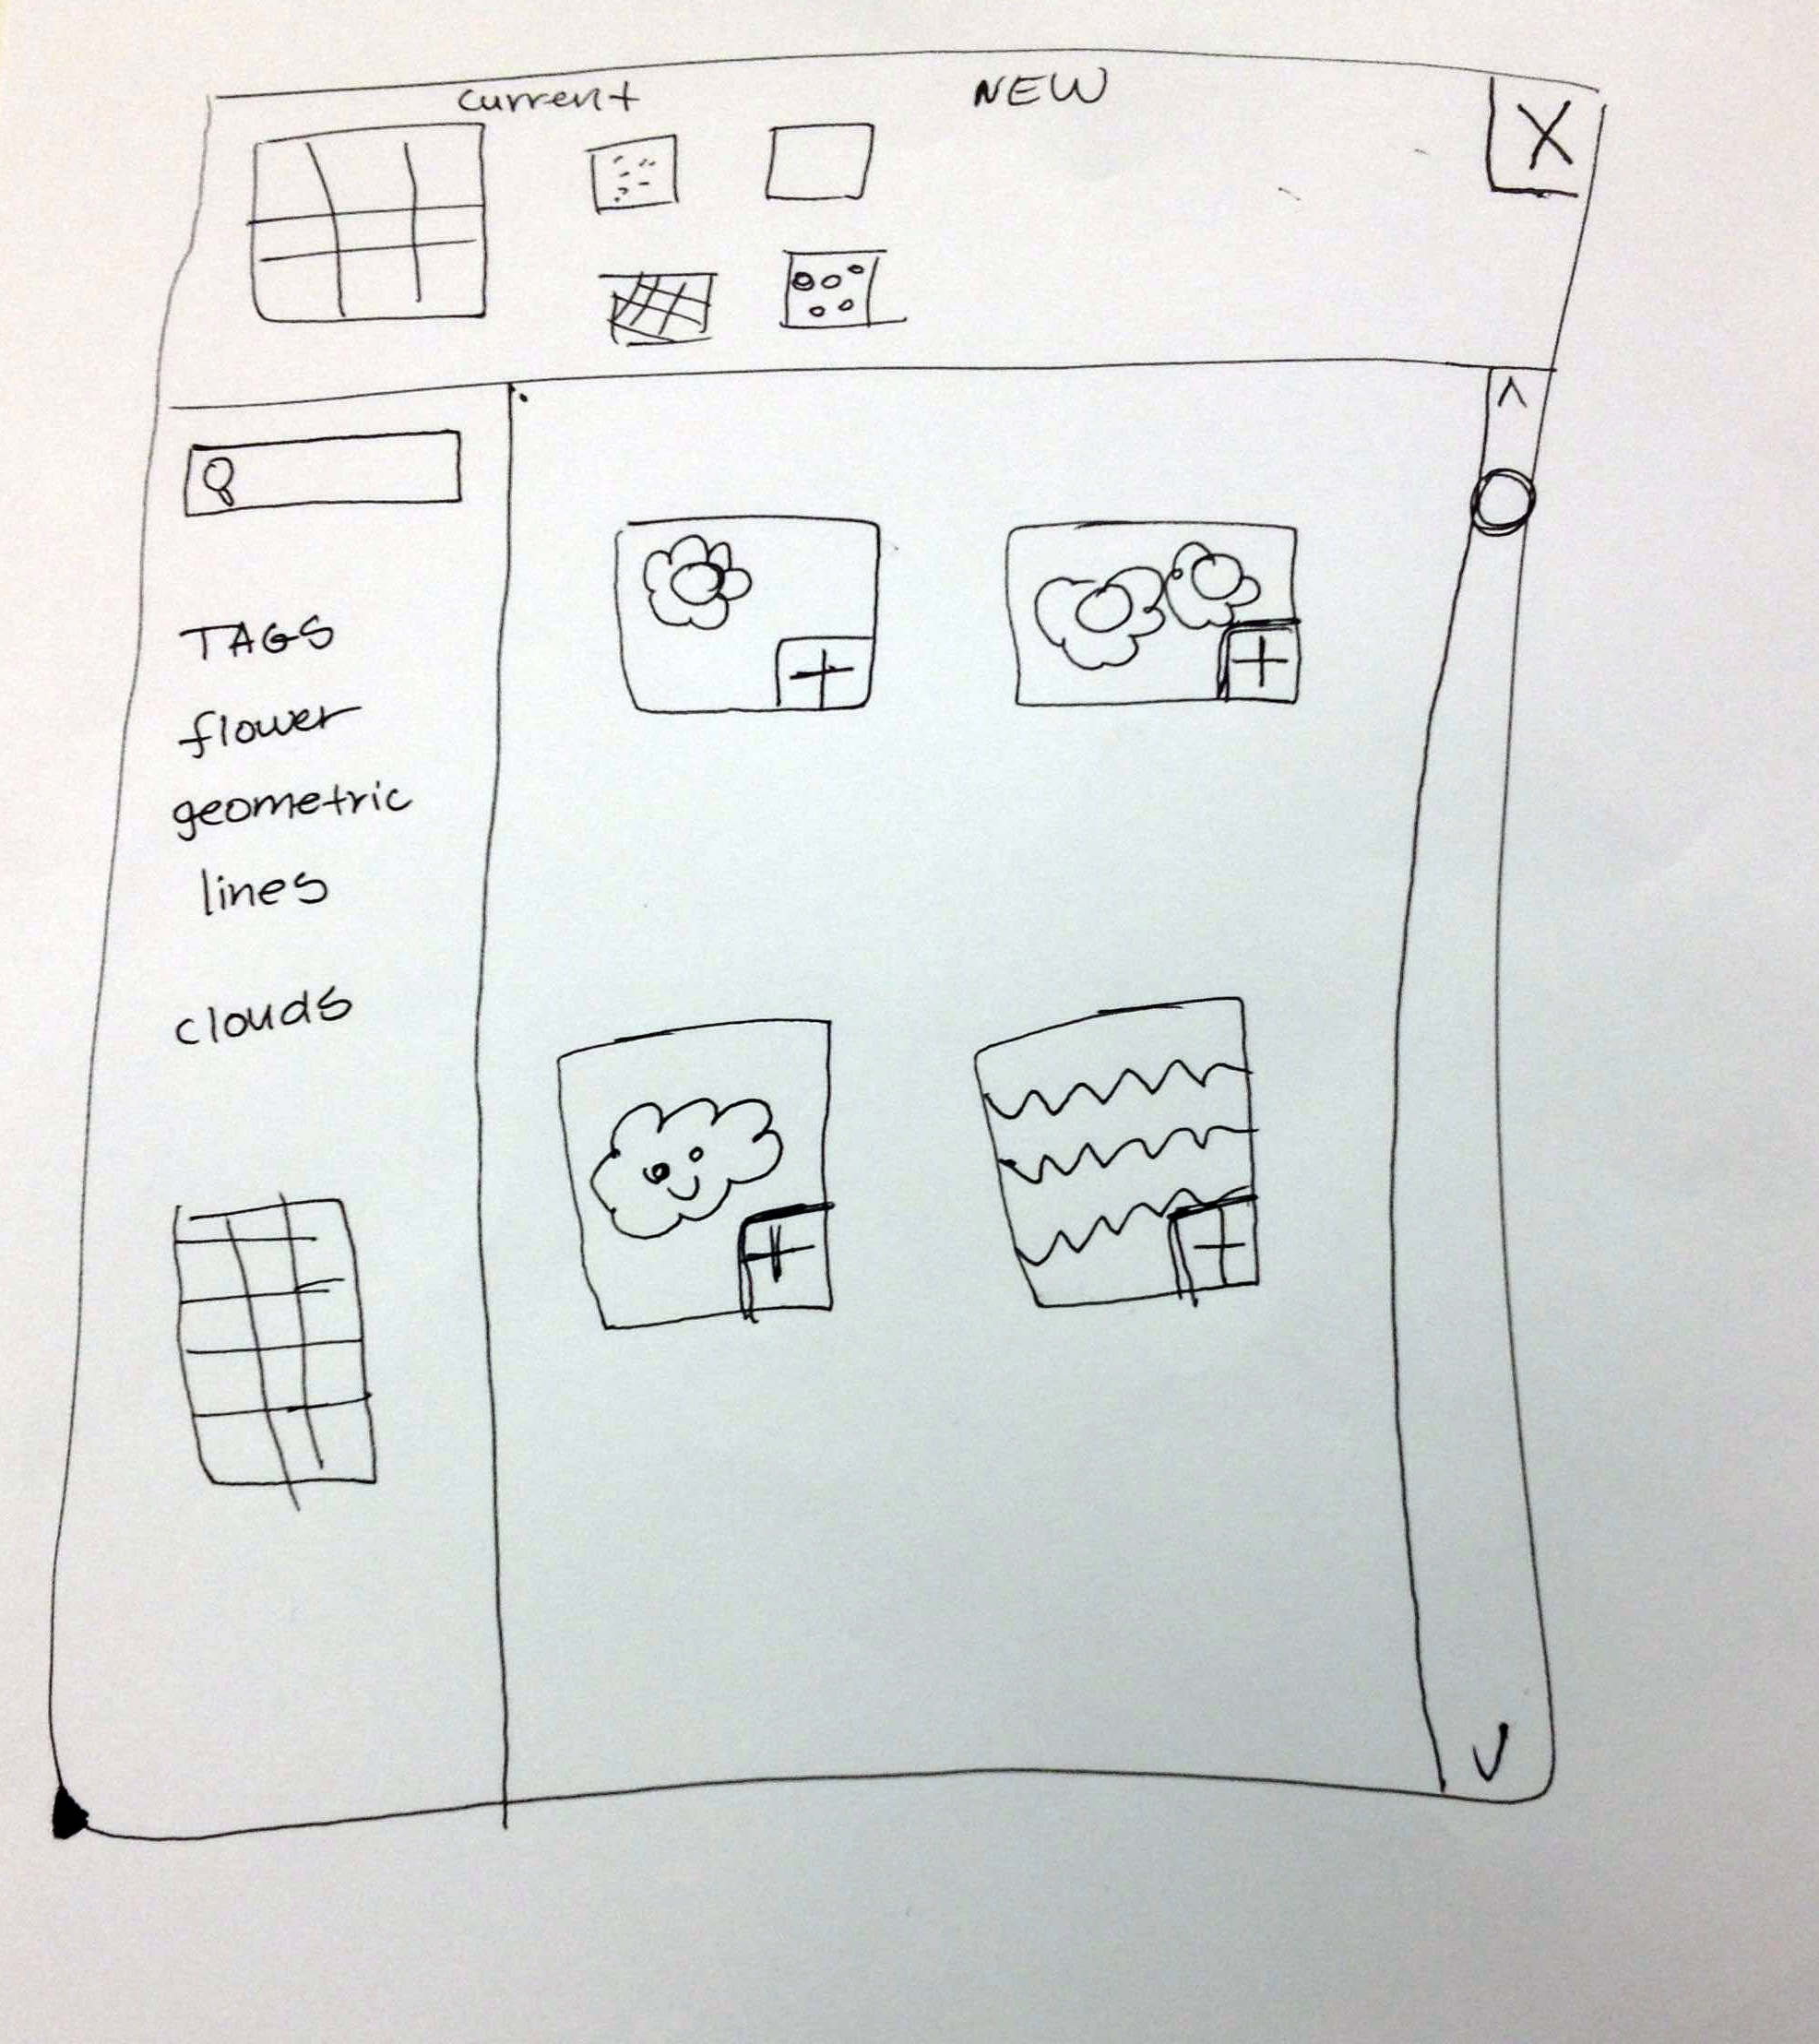 current
NEW
X
TAGS
flower
geometric
lines
clouds